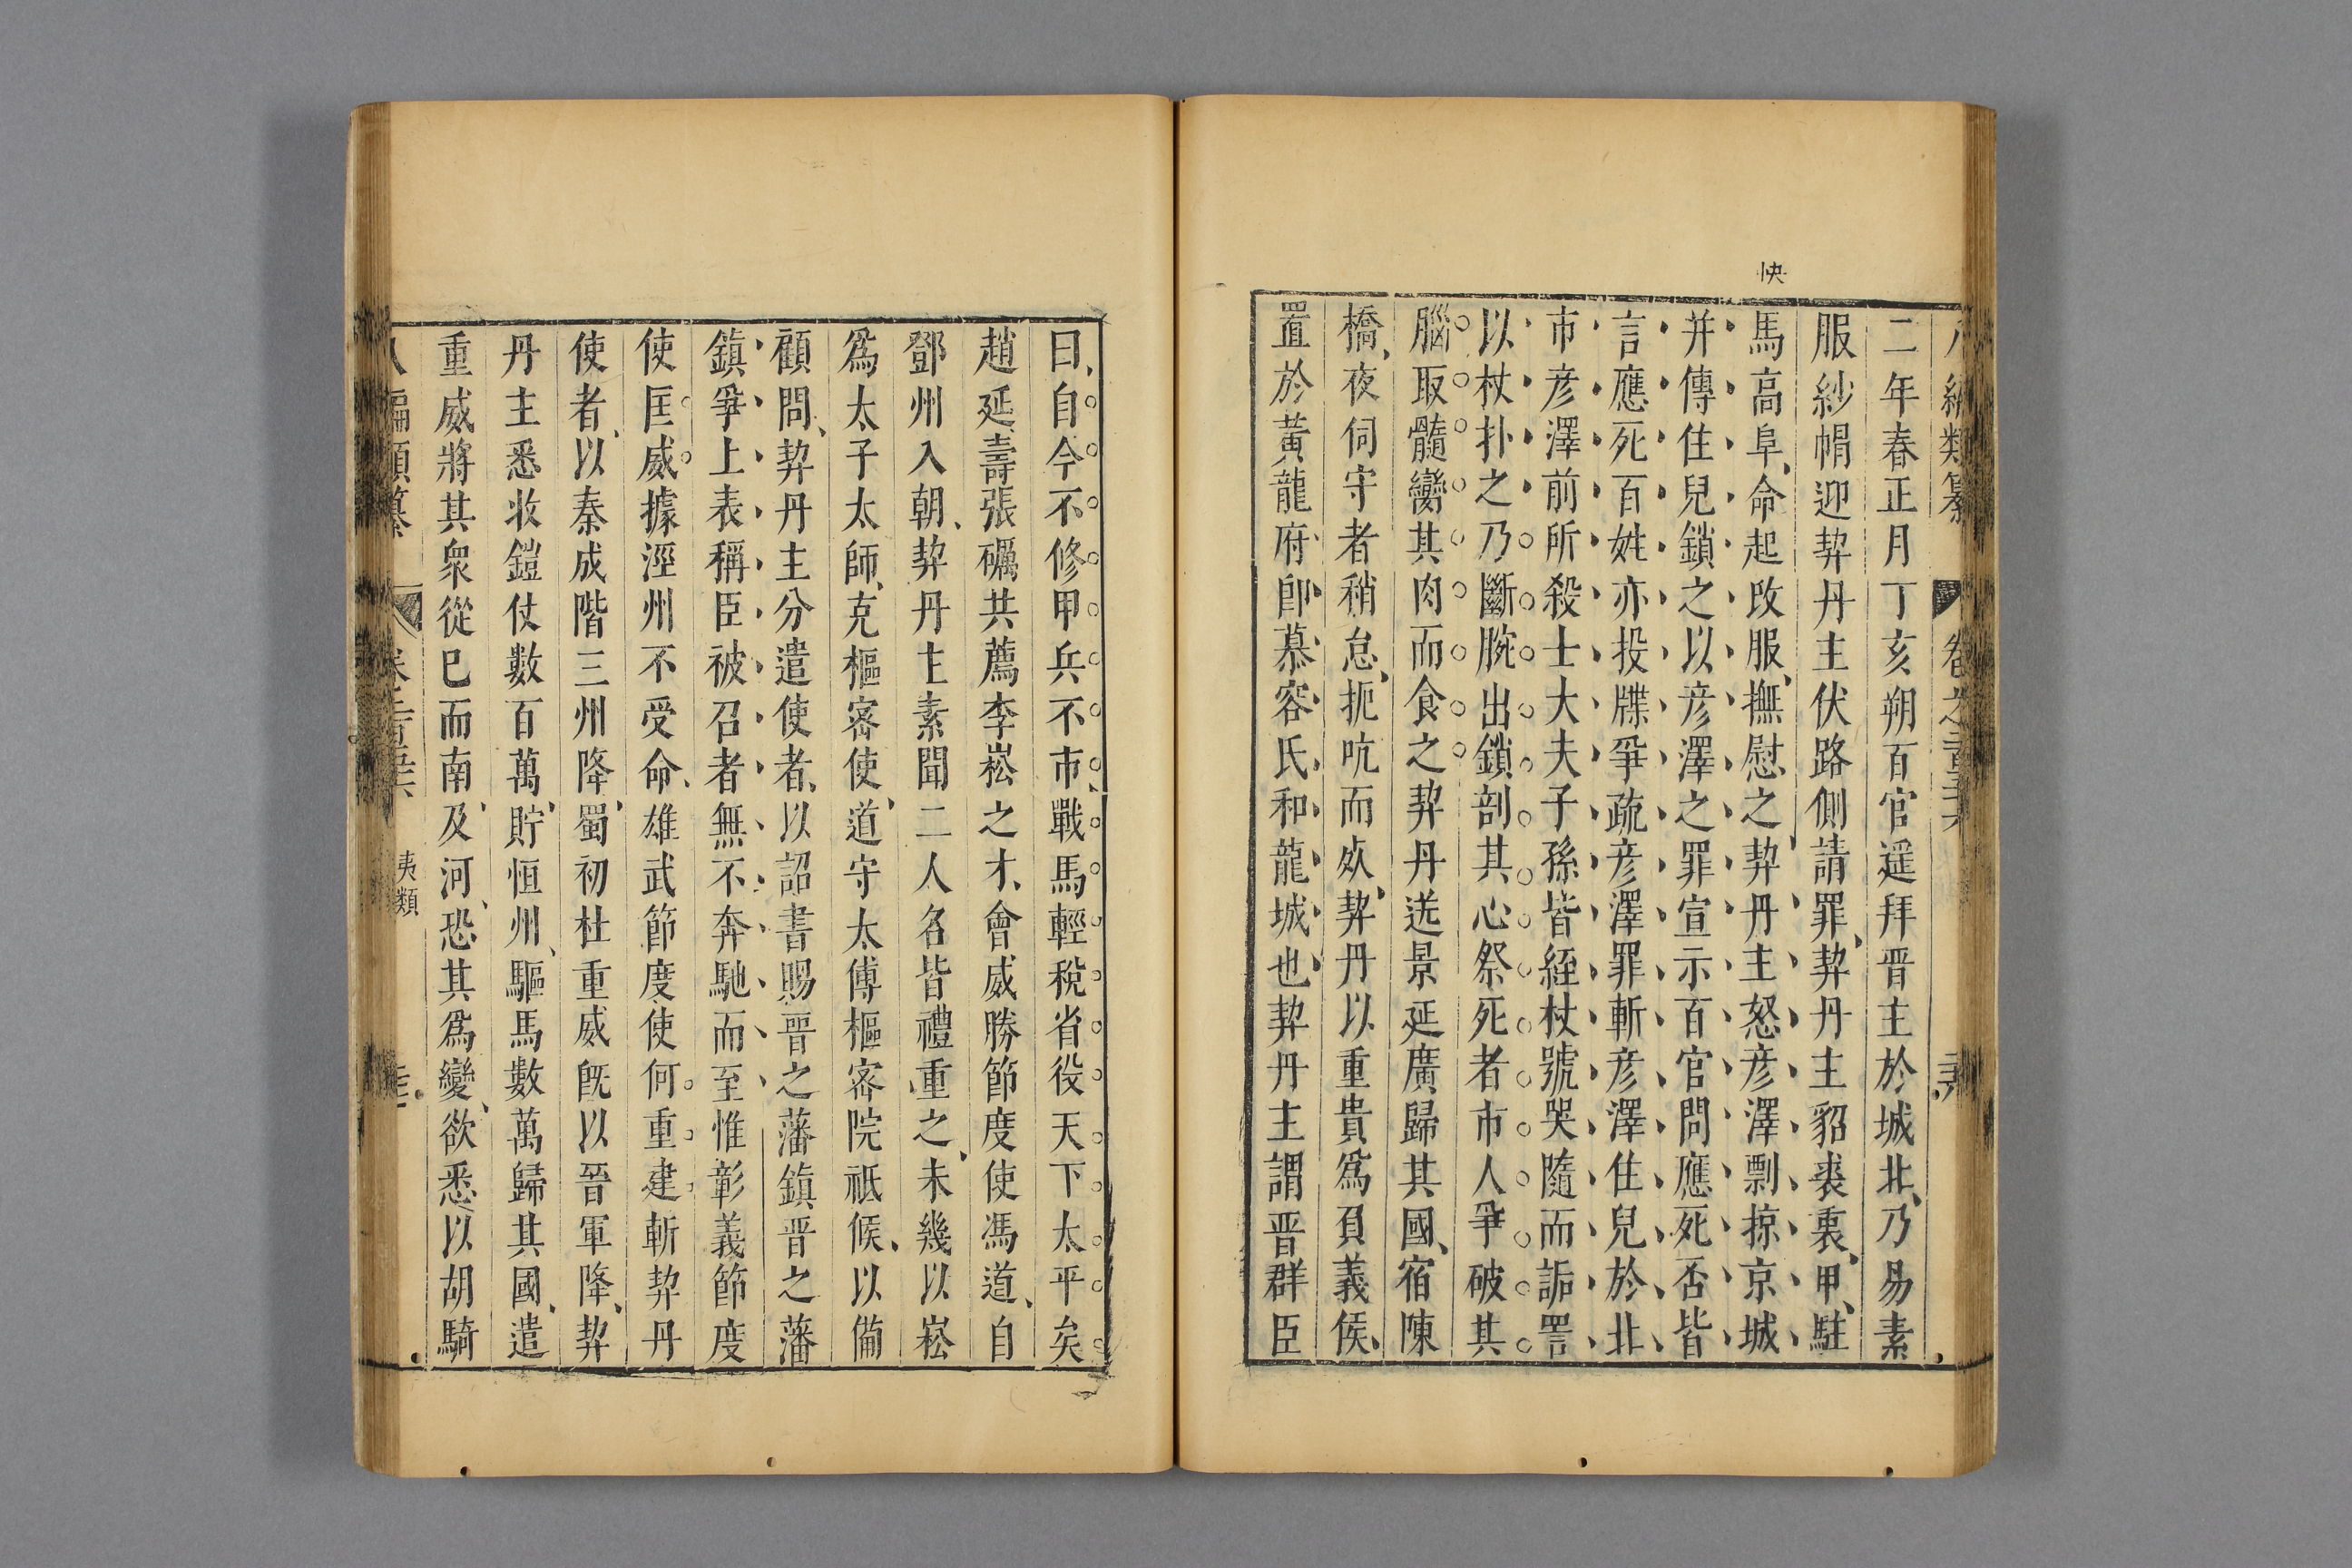 快
二年春正月丁亥朔百官遥拜晋主於城北乃易素
服紗帽迎契丹主伏路側請罪契丹主貂裘裏甲駐
馬高阜命起改服撫慰之契丹主怒彦澤剽掠京城
并傳住兒鎖之以彦澤之罪宣示百官問應死否皆
言應死百姓亦投牒爭疏彦澤罪斬彦澤住兒於北
市彦澤前所殺士大夫子孫皆絰杖號哭隨而詬詈
以杖扑之乃斷腕出鎖剖其心祭死者市人爭破其
腦取髓臠其肉而食之契丹送景延廣歸其國宿陳
橋夜伺守者稍怠扼吭而死契丹以重貴爲負義侯
置於黃龍府即慕容氏和龍城也契丹主謂晋群臣
曰自今不修甲兵不市戰馬輕稅省役天下太平矣
趙延壽張礪共薦李崧之才會威勝節度使馮道自
鄧州入朝契丹主素聞二人名皆禮重之未幾以崧
爲太子太師充樞密使道守太傅樞密院祗候以備
顧問契丹主分遣使者以詔書賜晋之藩鎮晋之藩
鎮爭上表稱臣被召者無不奔馳而至惟彰義節度
使匡威據涇州不受命雄武節度使何重建斬契丹
使者以秦成階三州降蜀初杜重威既以晉軍降契
丹主悉收鎧仗數百萬貯恒州驅馬數萬歸其國遣
重威將其衆從已而南及河恐其爲變欲悉以胡騎
夷類